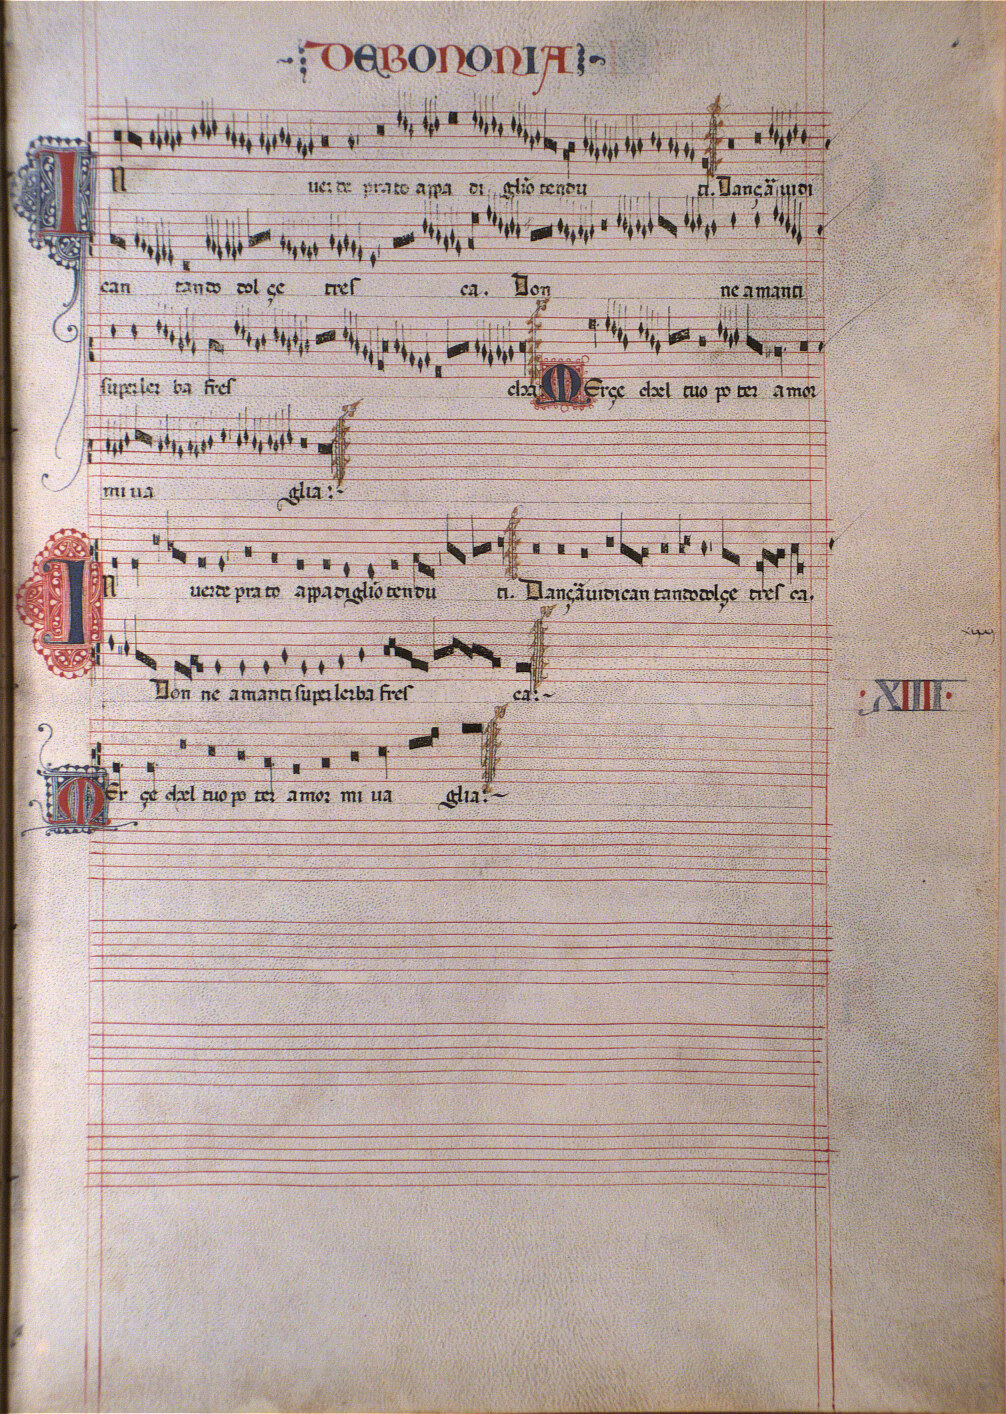 DEBONONIA
IN uerde prato appa di glio tendu ti. Dançã uidi
can tando dolçe tres ca. Don ne amanti
super ler ba fres cha MErçe chel tuo po ter amor
mi ua glia:~
IN uerde prato appadiglio tendu ti. Dançã uidi can tando dolçe tres ca.
Don ne amanti super lerba fres ca:~
XIIII
MEr çe chel tuo po ter amor mi ua glia:~